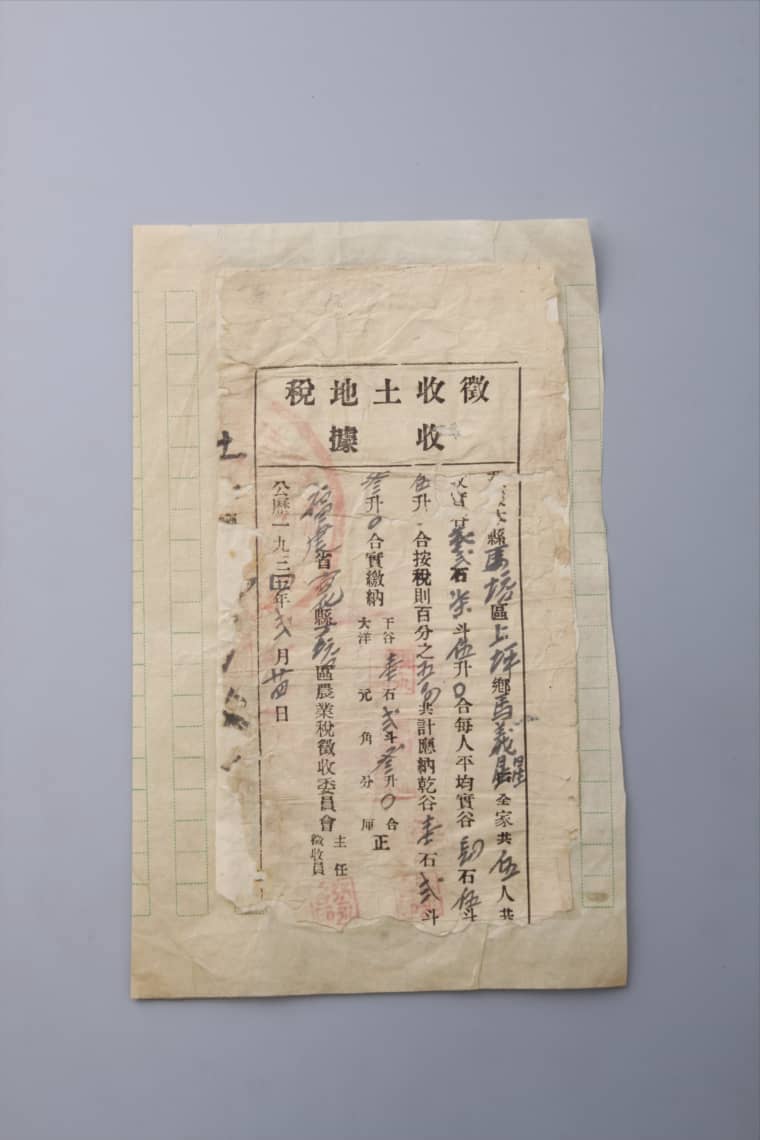 徵收土地稅
收據
縣馬坊區上坪鄉馬義 全家共伍人共
石柒斗伍升0合每人平均實谷 石伍斗
伍升 合按稅則百分之五 共計應納乾谷壹石弍斗
叁升0合實繳納
干谷壹石弍斗叁升0合
大洋 元 角 分 厘
正
福建省 縣 坊區農業稅徵收委員會
主任
徵收員
公曆一九三四年弍月廿四日
土